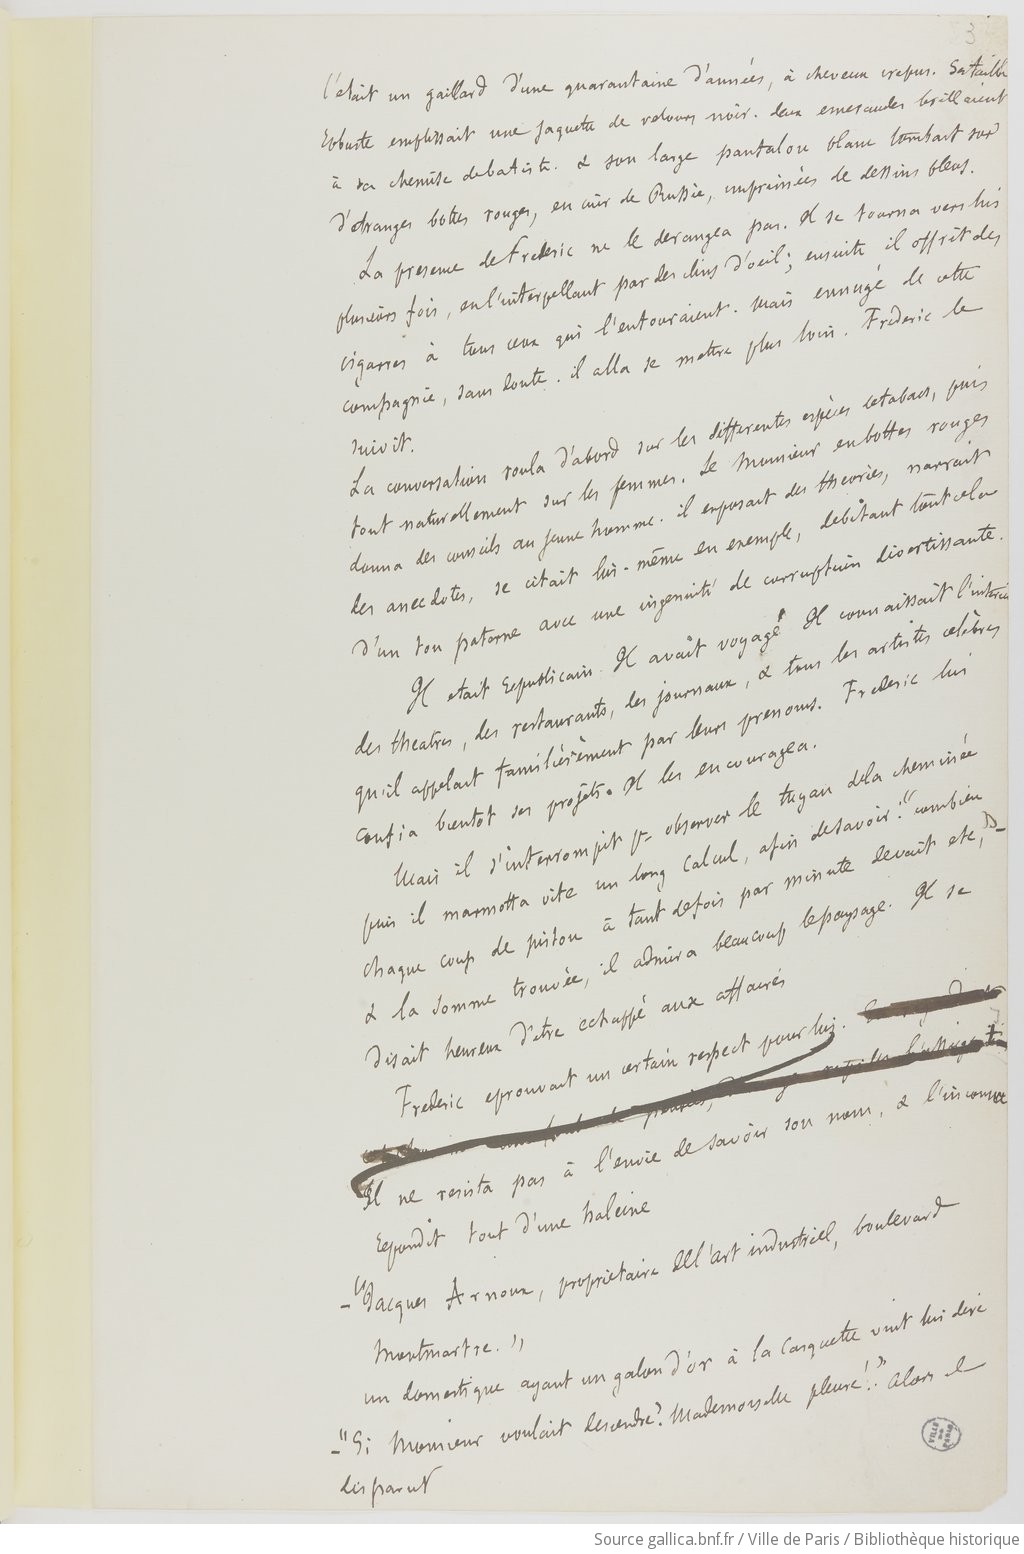 3
C'était un gaillard d'une quarantaine d'années, à cheveux crepus. Sa taille
Robuste emplissait une jaquette de velours noir. deux emeraudes brillaient
à sa chemise de batiste. & son large pantalon blanc tombait sur
d'étranges bottes rouges, en cuir de Russie, impreinées de dessins bleus.
La presence de Frederic ne le derangea pas. Il se tourna vers lui
plusieurs fois, en l'interpellant par des clins d'oeil; ensuite il offrit des
cigarres à tous ceux qui l'entouraient. Mais ennuyé de cette
compagnie, sans doute. il alla se mettre plus loin. Frederic le
suivit.
La conversation roula d'abord sur les differentes espèces de tabacs, puis
tout naturellement sur les femmes. Le Monsieur en bottes rouges
donna des conseils au jeune homme. il exposait des theories, narrait
des anecdotes, se citait lui-même en exemple, debitant tout cela
d'un ton paterne avec une ingenuité de corruption divertissante.
Il etait Republicain. Il avait voyagé. Il connaissait l'interieur
des theatres, des restaurants, des journaux, & tous les artistes celèbres
qu'il appelait familièrement par leurs prenoms. Frederic lui
confia bientot ses projets. Il les encouragea.
Mais il s'interrompit pr observer le tuyau dela cheminée
puis il marmotta vite un long calcul, afin de savoir: "combien
chaque coup de piston à tant de fois par minute devait etc,"-
& la somme trouvée, il admira beaucoup le paysage. Il se
disait heureux d'etre echappé aux affaires
Frederic eprouvait un certain respect pour lui.
Il ne resista pas à l'envie de savoir son nom, & l'inconnu
Repondit tout d'une haleine
-"Jacques Arnoux, proprietaire de l'art industriel, boulevard
Montmartre."
un domestique ayant un galon d'or à la casquette vint lui dire
-"Si Monsieur voulait descendre? Mademoiselle pleure!" Alors il
disparut
VILLE DE PARIS
Source gallica.bnf.fr / Ville de Paris / Bibliothèque historique